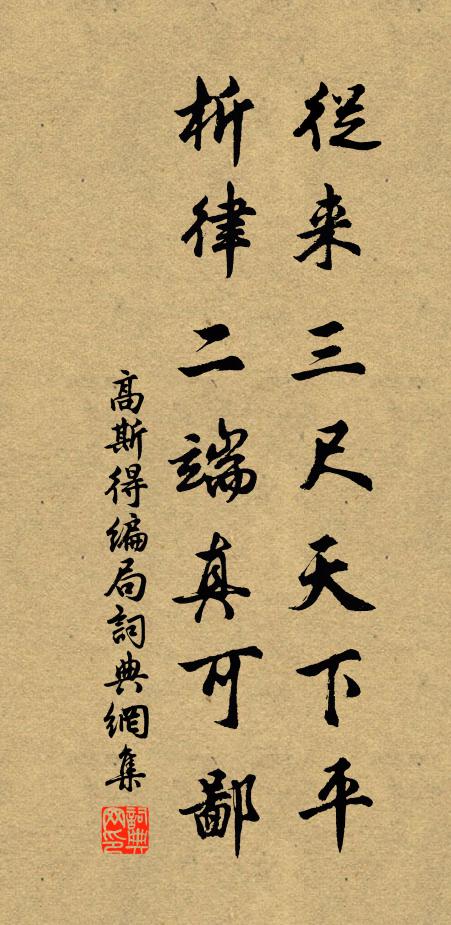 從来三尺天下平
析律二端真可鄙
高斯得編局詞典網集
詞典網印